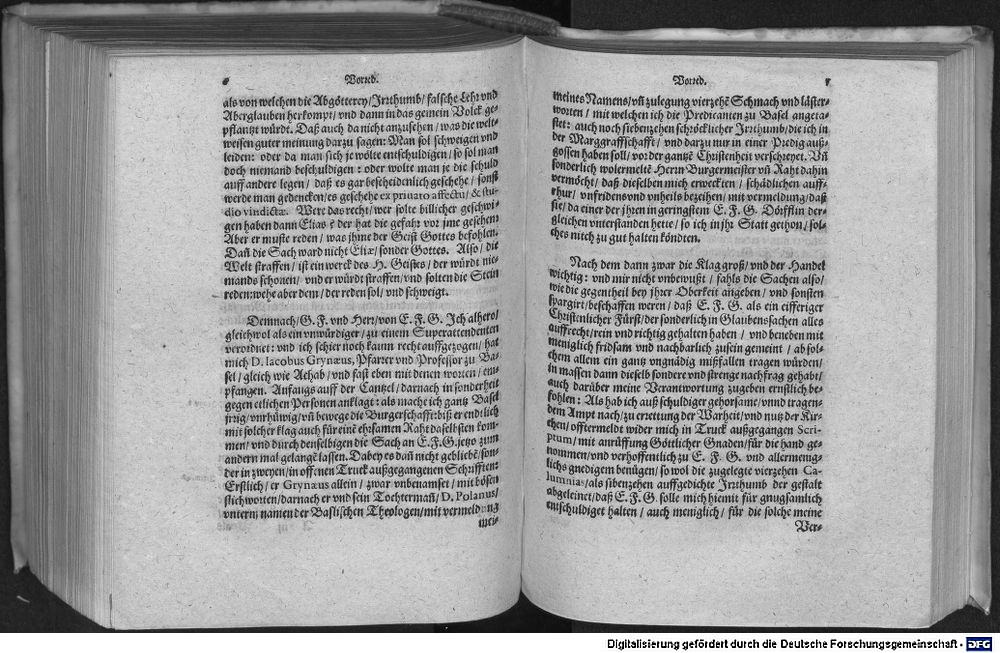 6 Vorred.
als von welchen die Abgötterey/Irrthumb/ falsche Lehr vnd
Aberglauben herkompt/ vnd dann in das gemein Volck ge-
pflantzt würdt. Daß auch da nicht anzusehen/ was die welt-
weisen guter meinung darzu sagen: Man sol schweigen vnd
leiden: oder da man sich je wölte entschuldigen/ so sol man
doch niemand beschuldigen: oder wolte man je die schuld
auff andere legen/ daß es gar bescheidenlich geschehe/ sonst
werde man gedencken/ es geschehe ex priuato affectu, & stu-
dio vindictæ. Were das recht/ wer solte billicher geschwi-
gen haben dann Elias? der hat die gefahr vor jme gesehen
Aber er muste reden/ was ihme der Geist Gottes befohlen.
Dañ die Sach ward nicht Eliæ/ sonder Gottes. Also/ die
Welt straffen/ ist ein werck des H. Geistes/ der würdt nie-
mands schonen/ vnd er würdt straffen/ vnd solten die Stein
reden: wehe aber dem/ der reden sol/ vnd schweigt.
Demnach/ G. F. vnd Herr/ von E. F. G. Ich alhero/
gleichwol als ein vnwürdiger/ zu einem Superattendenten
verordnet: vnd ich schier noch kaum recht auffgezogen/ hat
mich D. Iacobus Grynæus, Pfarrer vnd Professor zu Ba-
sel/ gleich wie Achab/ vnd fast eben mit denen worten/ em-
pfangen. Anfangs auff der Cantzel/ darnach in sonderheit
gegen etlichen Personen anklagt: als mache ich gantz Basel
jrrig/ vnrhüwig/ vñ bewege die Burgerschafft: biß er endtlich
mit solcher klag auch für eine ehrsamen Raht daselbsten kom-
men/ vnd durch denselbigen die Sach an E. F. G. jetzo zum
andern mal gelangẽ lassen. Dabey es dañ nicht gebliebẽ/ son-
der in zweyen/ in offenen Truck außgegangenen Schrifften:
Erstlich/ er Grynæus allein/ zwar vnbenamset/ mit bösen
stichworten/ darnach er vnd sein Tochtermañ/ D. Polanus/
vnterm namen der Baslischen Theologen/ mit vermeldung
mei-
Vorred. 7
meines Namens/ vñ zulegung vierzehẽ Schmach vnd läster-
worten/ mit welchen ich die Predicanten zu Basel angeta-
stet: auch noch siebenzehen schröcklicher Irrthumb/ die ich in
der Marggraffschafft/ vnd darzu nur in einer Predig auß-
gossen haben soll/ vor der gantzẽ Christenheit verschreyet. Vñ
sonderlich wolermelte Herrn Burgermeister vñ Raht dahin
vermöcht/ daß dieselben mich erweckten/ schädlichen auff-
rhur/ vnfridens vnd vnheils bezeihen/ mit vermeldung/ daß
sie/ da einer der jhren in geringstem E. F. G. Dörfflin der-
gleichen vnterstanden hette/ so ich in jhr Statt gethon/ sol-
ches nitch zu gut halten köndten.
Nach dem dann zwar die Klag groß/ vnd der Handel
wichtig: vnd mir nicht vnbewußt/ fahls die Sachen also/
wie die gegentheil bey jhrer Oberkeit angeben/ vnd sonsten
spargirt/ beschaffen weren/ daß E. F. G. als ein eifferiger
Christenlicher Fürst/ der sonderlich in Glaubenssachen alles
auffrecht/ rein vnd richtig gehalten haben/ vnd beneben mit
meniglich fridsam vnd nachbarlich zusein gemeint/ ab sol-
chem allein ein gantz vngnädig mißfallen tragen würden/
in massen dann dieselb sondere vnd strenge nachfrag gehabt/
auch darüber meine Verantwortung zugeben ernstlich be-
fohlen: Als hab ich auß schuldiger gehorsame/ vnnd tragen-
dem Ampt nach/ zu errettung der Warheit/ vnd nutz der Kir-
chen/ offtermeldt wider mich in Truck außgegangen Scri-
ptum/ mit anrüffung Göttlicher Gnaden/ für die hand ge-
nommen/ vnd verhoffentlich zu E. F. G. vnd allermenig-
lichs gnedigem benügen/ so wol die zugelegte vierzehen Ca-
lumnias/ als sibenzehen auffgedichte Irrthumb der gestalt
abgeleinet/ daß E. F. G. solle mich hiemit für gnugsamlich
entschuldiget halten/ auch meniglich/ für die solche meine
Ver-
Digitalisierung gefördert durch die Deutsche Forschungsgemeinschaft - DFG